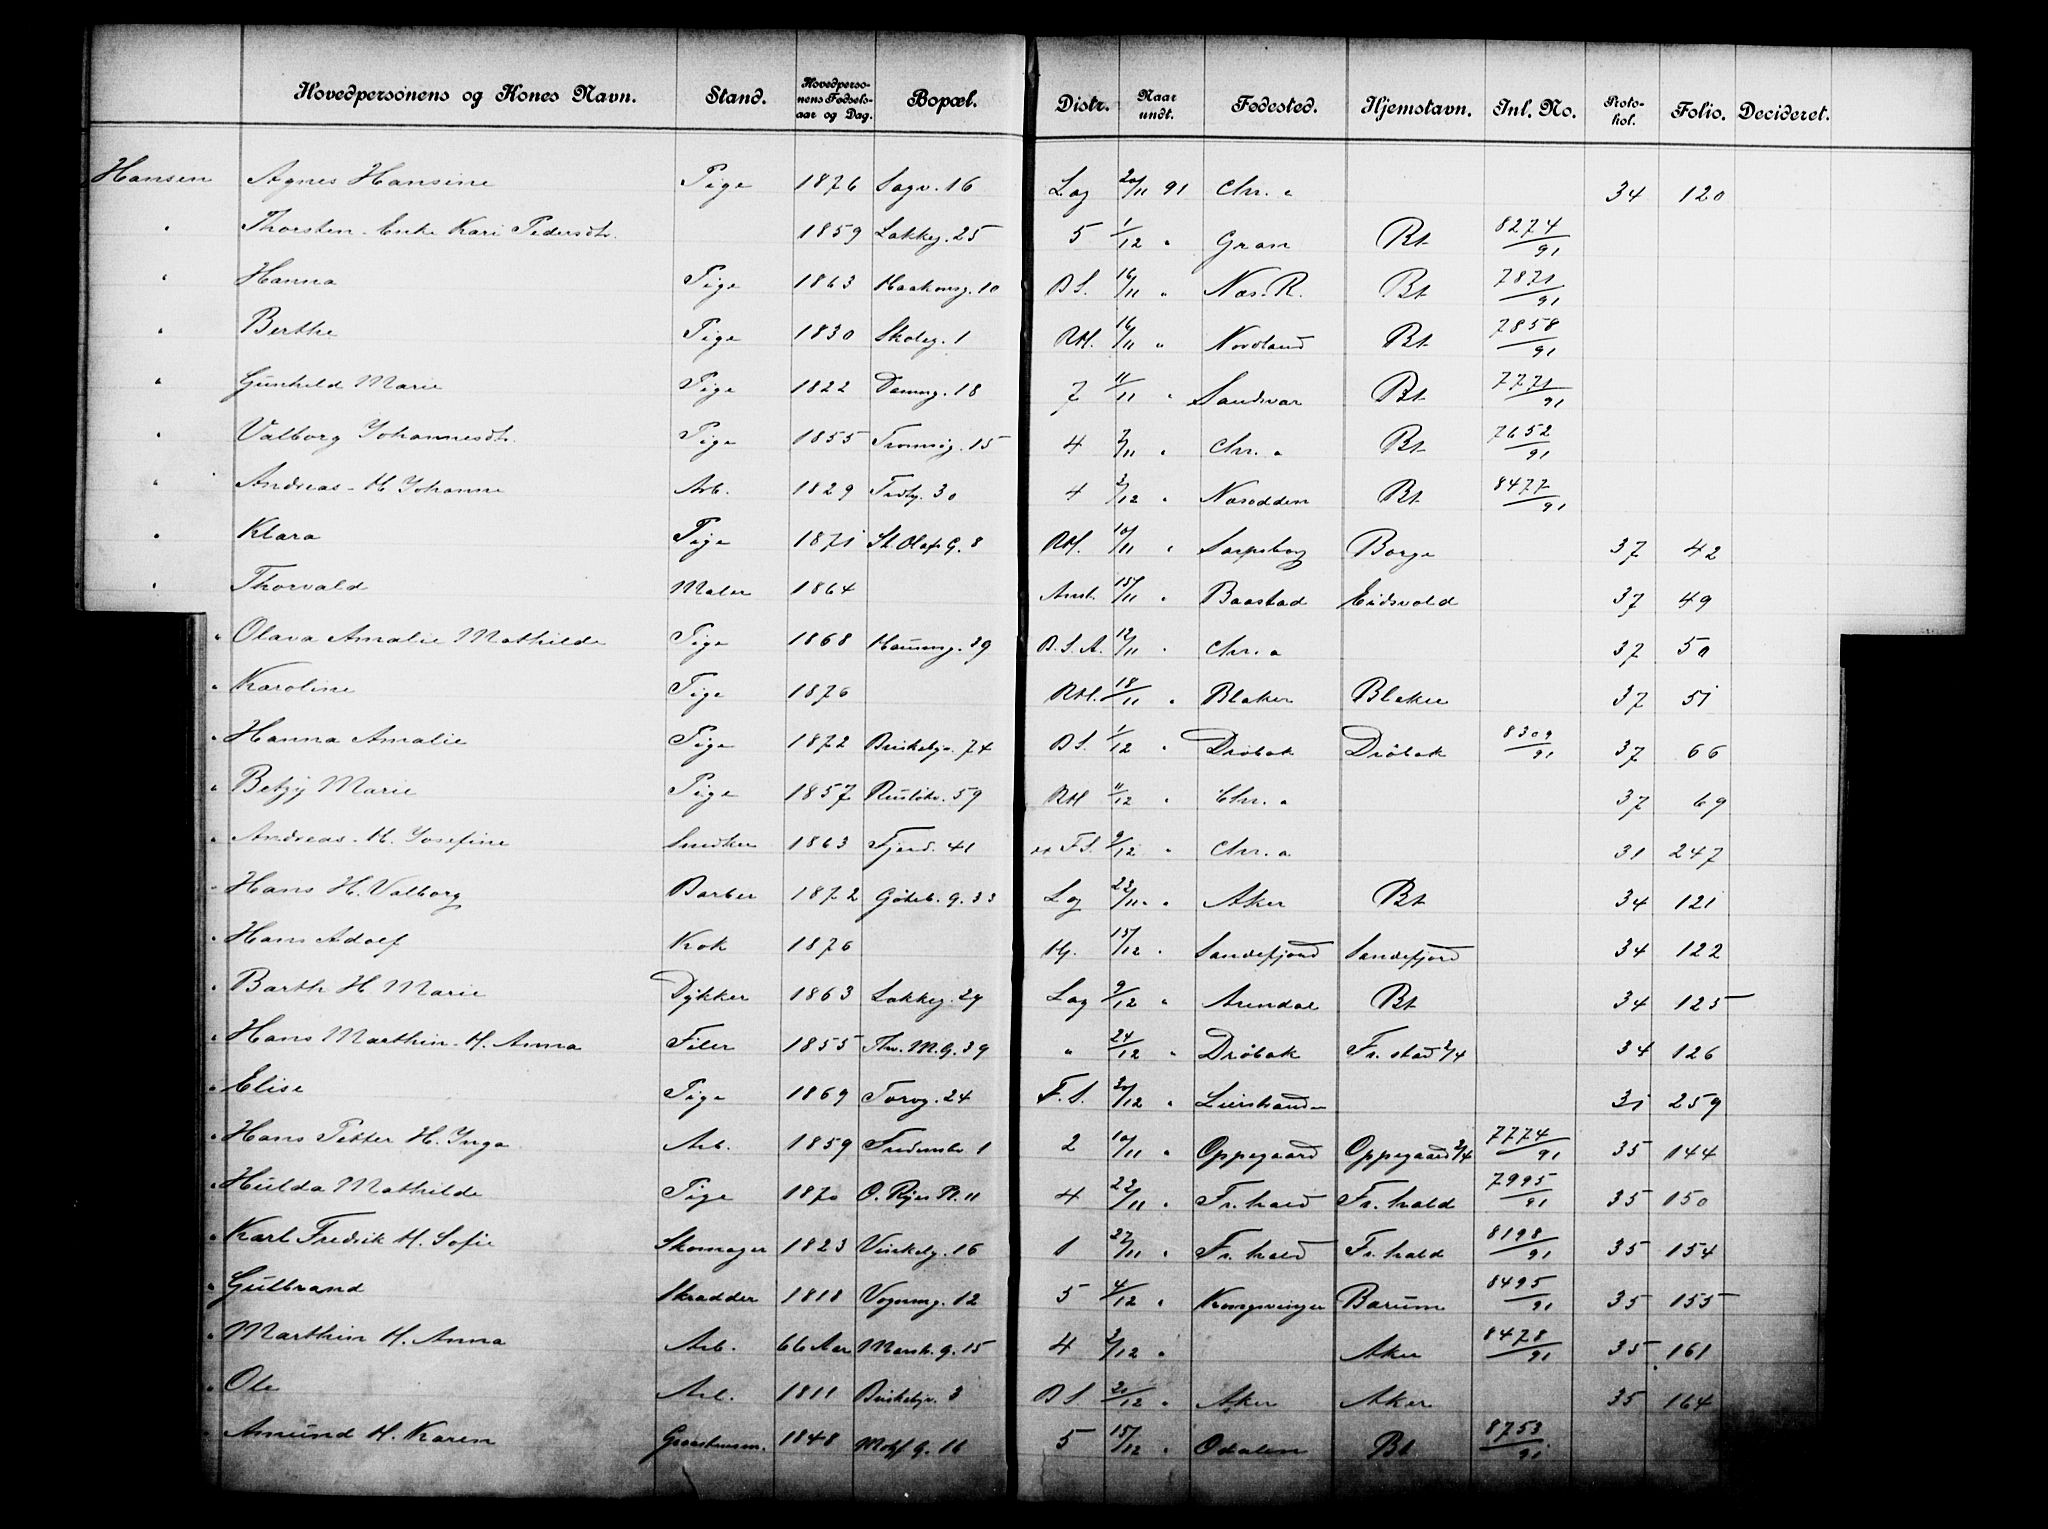 Hovedpersonens og Kones Navn. Stand. Hovedpersonens Fødselsaar og Dag. Bopæl. Distr. Naar undt. Fødested. Hjemstavn. Inl. No. Protokol. Folio. Decideret.
Hansen Agnes Hansine Pige 1876 Sagv. 16 Lag 20/11 91 Chr. a 34 120
" Thorsten - Enke Kari Pedersdtr. 1859 Lakkeg. 25 5 1/12 " Gran Bt 8274/91
" Hanna Pige 1863 Haakonsg. 10 B S. 16/11 " Næs. R. Bt 7871/91
" Berthe Pige 1830 Skoleg. 1 RH. 16/11 " Nordland Bt 7858/91
" Gunhild Marie Pige 1822 Damng. 18 7 11/11 " Sandsvær Bt 7771/91
" Valborg Johannesdtr. Pige 1855 Tromsøg. 15 4 7/11 " Chr. a Bt 7652/91
" Andreas - H Johanne Arb. 1829 30 4 3/12 " Næsodden Bt 8477/91
" Klara Pige 1871 St. Olafs G. 8 RH. 10/11 " Sarpsborg Borge 37 42
" Thorvald Maler 1864 15/11 " Baastad Eidsvold 37 49
" Olava Amalie Mathilde Pige 1868 Hausmg. 39 B. S. A. 12/11 " Chr. a 37 50
" Karoline Pige 1876 RH. 18/11 " Blaker Blaker 37 51
" Hanna Amalie Pige 1872 Briskebyv. 74 B S. 1/12 " Drøbak Drøbak 8309/91 37 66
" Betzy Marie Pige 1857 Ruseløkv. 59 RH 11/12 " Chr. a 37 69
" Andreas - H. Josefine Snedker 1863 Fjerd. 41 F. S. 9/12 " Chr. a 31 247
" Hans H. Valborg Barber 1872 Göteb. g. 33 Lag 23/11 " Aker Bt 34 121
" Hans Adolf Kok 1876 Hj. 15/12 " Sandefjord Sandefjord 34 122
" Barth H Marie Dykker 1863 Lakkeg. 29 Lag 9/12 " Arendal Bt 34 125
" Hans Marthin - H. Anna Filer 1855 Thv. M. G. 39 " 24/12 " Drøbak Fr. stad 2/4 34 126
" Elise Pige 1869 Torvg. 24 F. S. 20/12 " Lierstranden 31 259
" Hans Petter H. Inga Arb. 1859 Fredensbv. 1 2 10/11 " Oppegaard Oppegaard 2/4 7774/91 35 144
" Hulda Mathilde Pige 1870 O. Ryes Pl. 11 4 22/11 " Fr. hald Fr. hald 7995/91 35 150
" Karl Fredrik H. Sofie Skomager 1823 Vinkelg. 16 1 27/11 " Fr. hald Fr. hald 8198/91 35 154
" Gulbrand Skrædder 1818 Vognmg. 12 5 4/12 " Kongsvinger Bærum 8495/91 35 155
" Marthin H. Anna Arb. 66 Aar Mark. g. 15 4 3/12 " Aker 8478/91 35 161
" Ole Arb. 1811 Briskebyv. 3 B S. 21/12 " Aker Aker 35 164
" Amund H. Karen 1848 16 5 15/12 " Odalen Bt. 8753/91